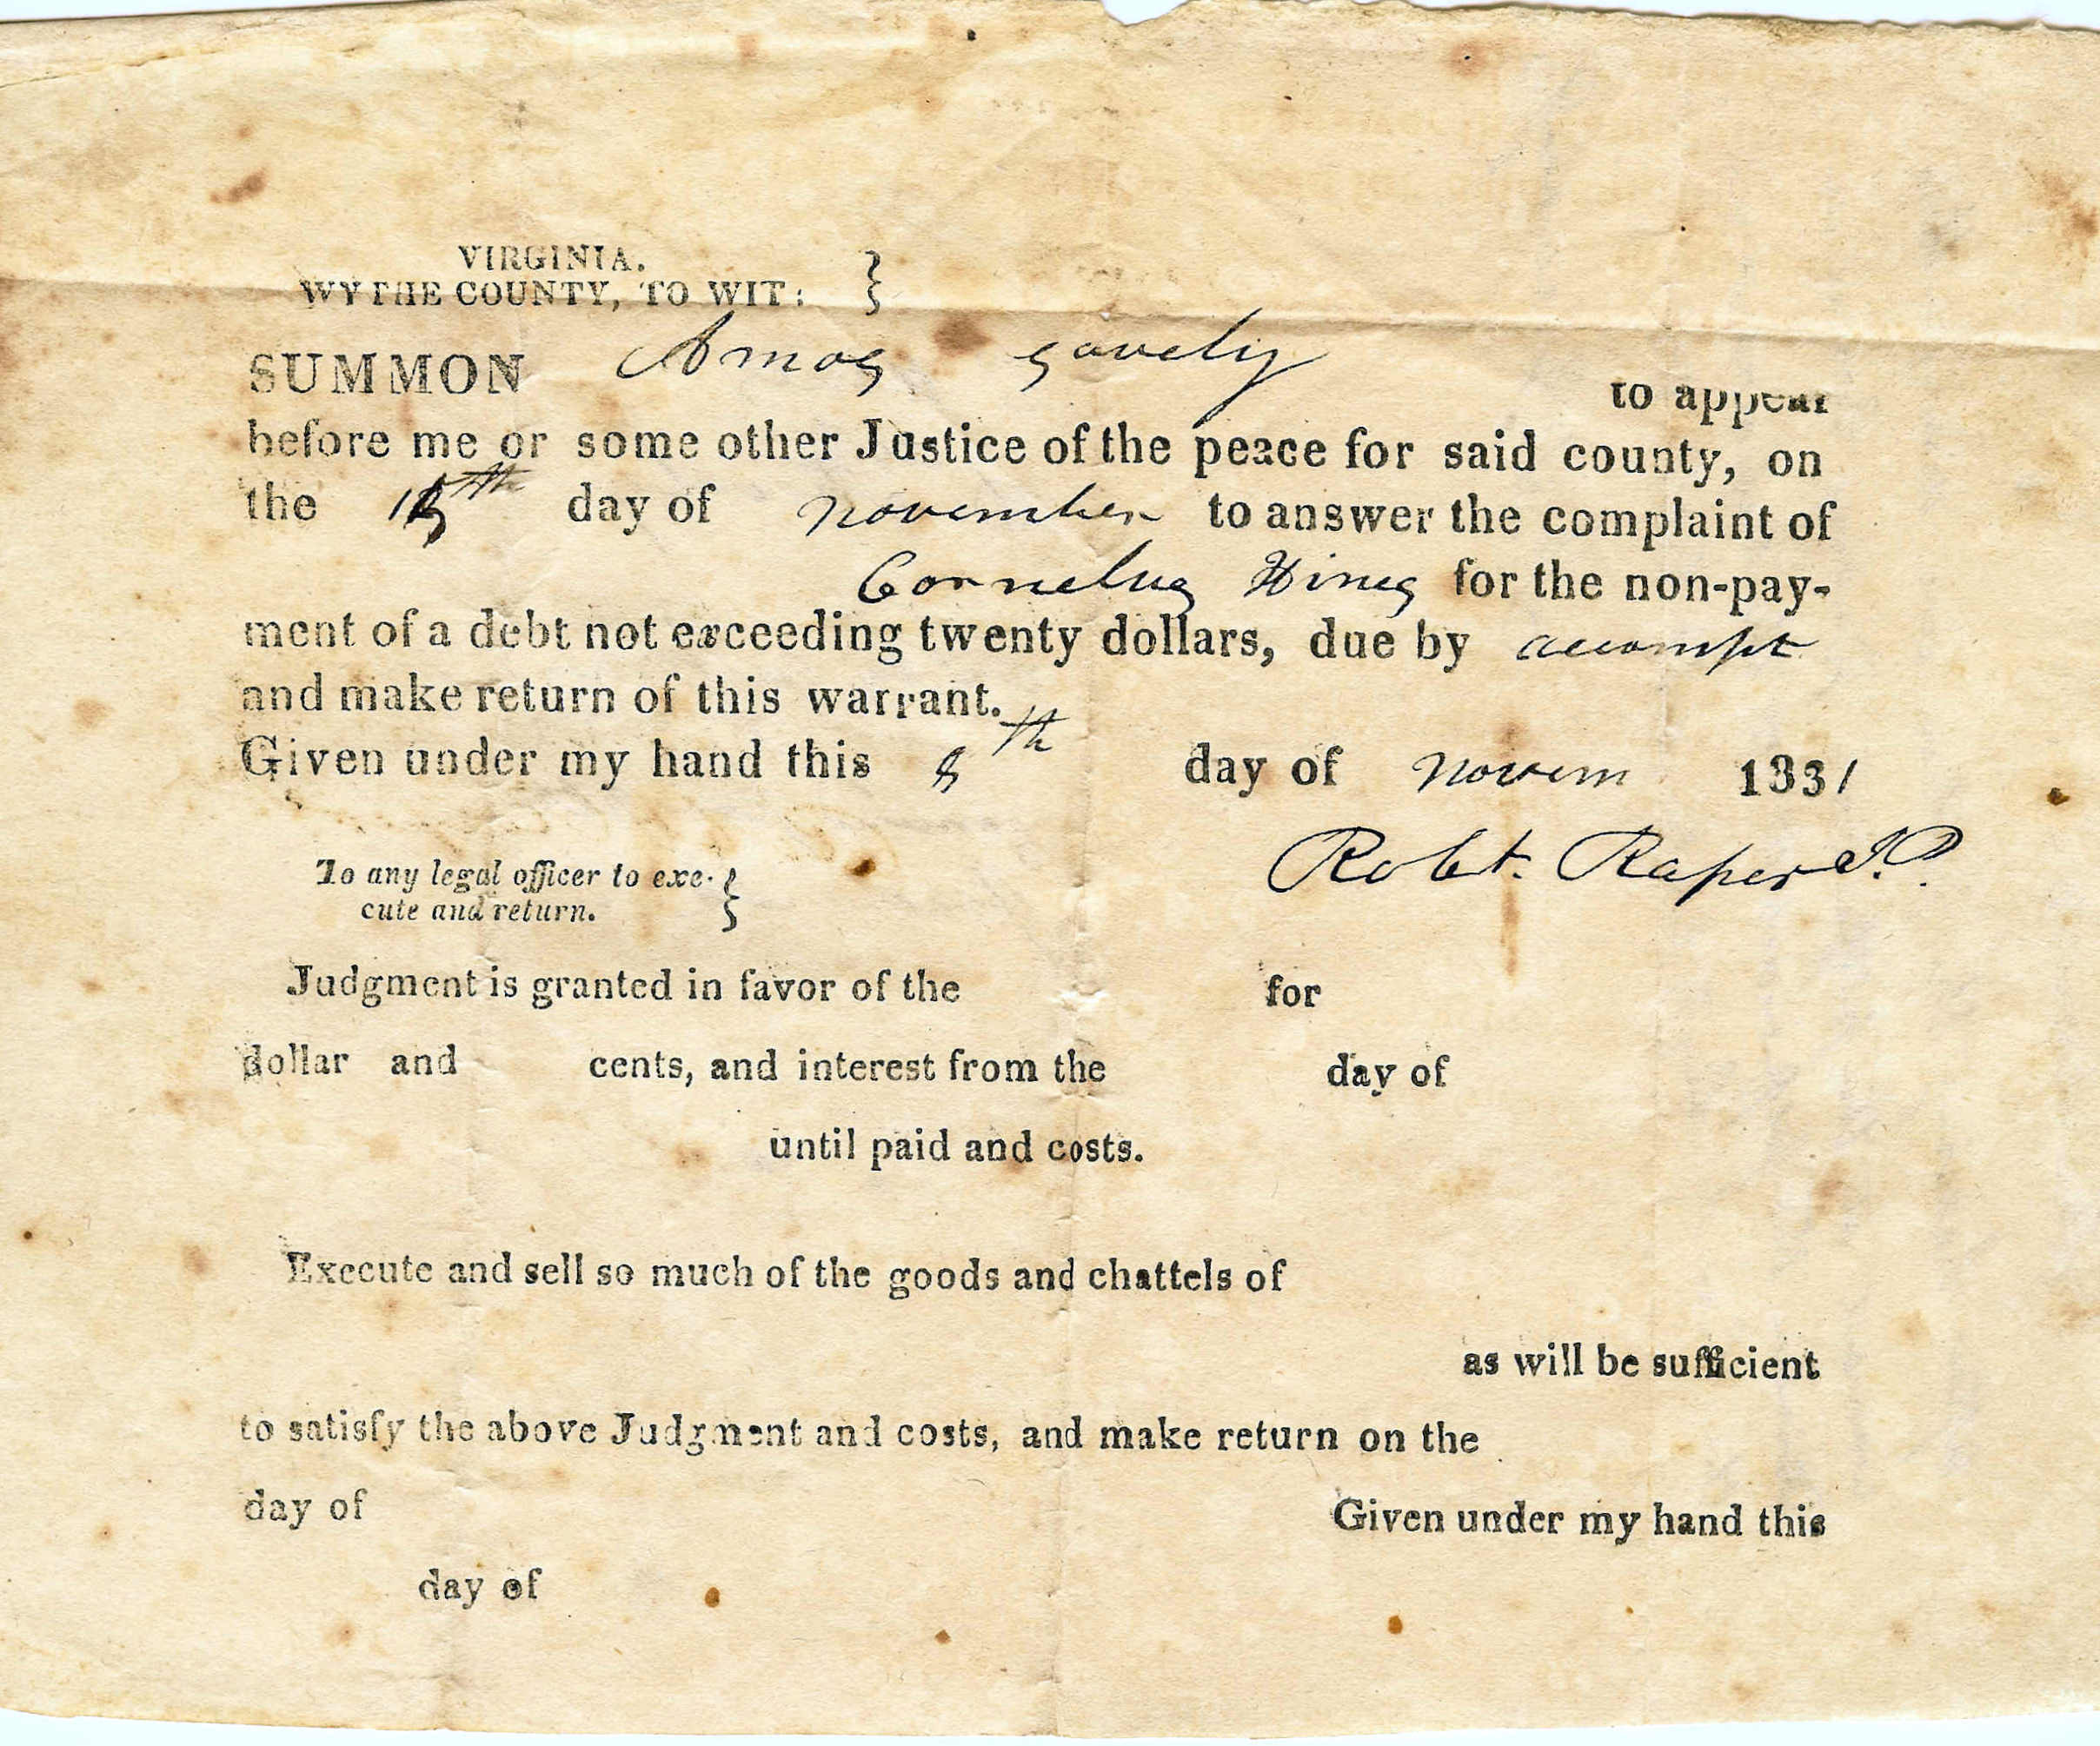 VIRGINIA.
WYTHE COUNTY, TO WIT: }
SUMMON Amos gavely to appear
before me or some other Justice of the peace for said county, on
the 15th day of november to answer the complaint of
Cornelus Hines for the non-pay-
ment of a debt not exceeding twenty dollars, due by accompt
and make return of this warrant.
Given under my hand this 8th day of novem 1831
Robt. Raper J.P.
To any legal officer to exe- }
cute and return.
Judgment is granted in favor of the for
dollar and cents, and interest from the day of
until paid and costs.
Execute and sell so much of the goods and chattels of
as will be sufficient
to satisfy the above Judgment and costs, and make return on the
day of Given under my hand this
day of